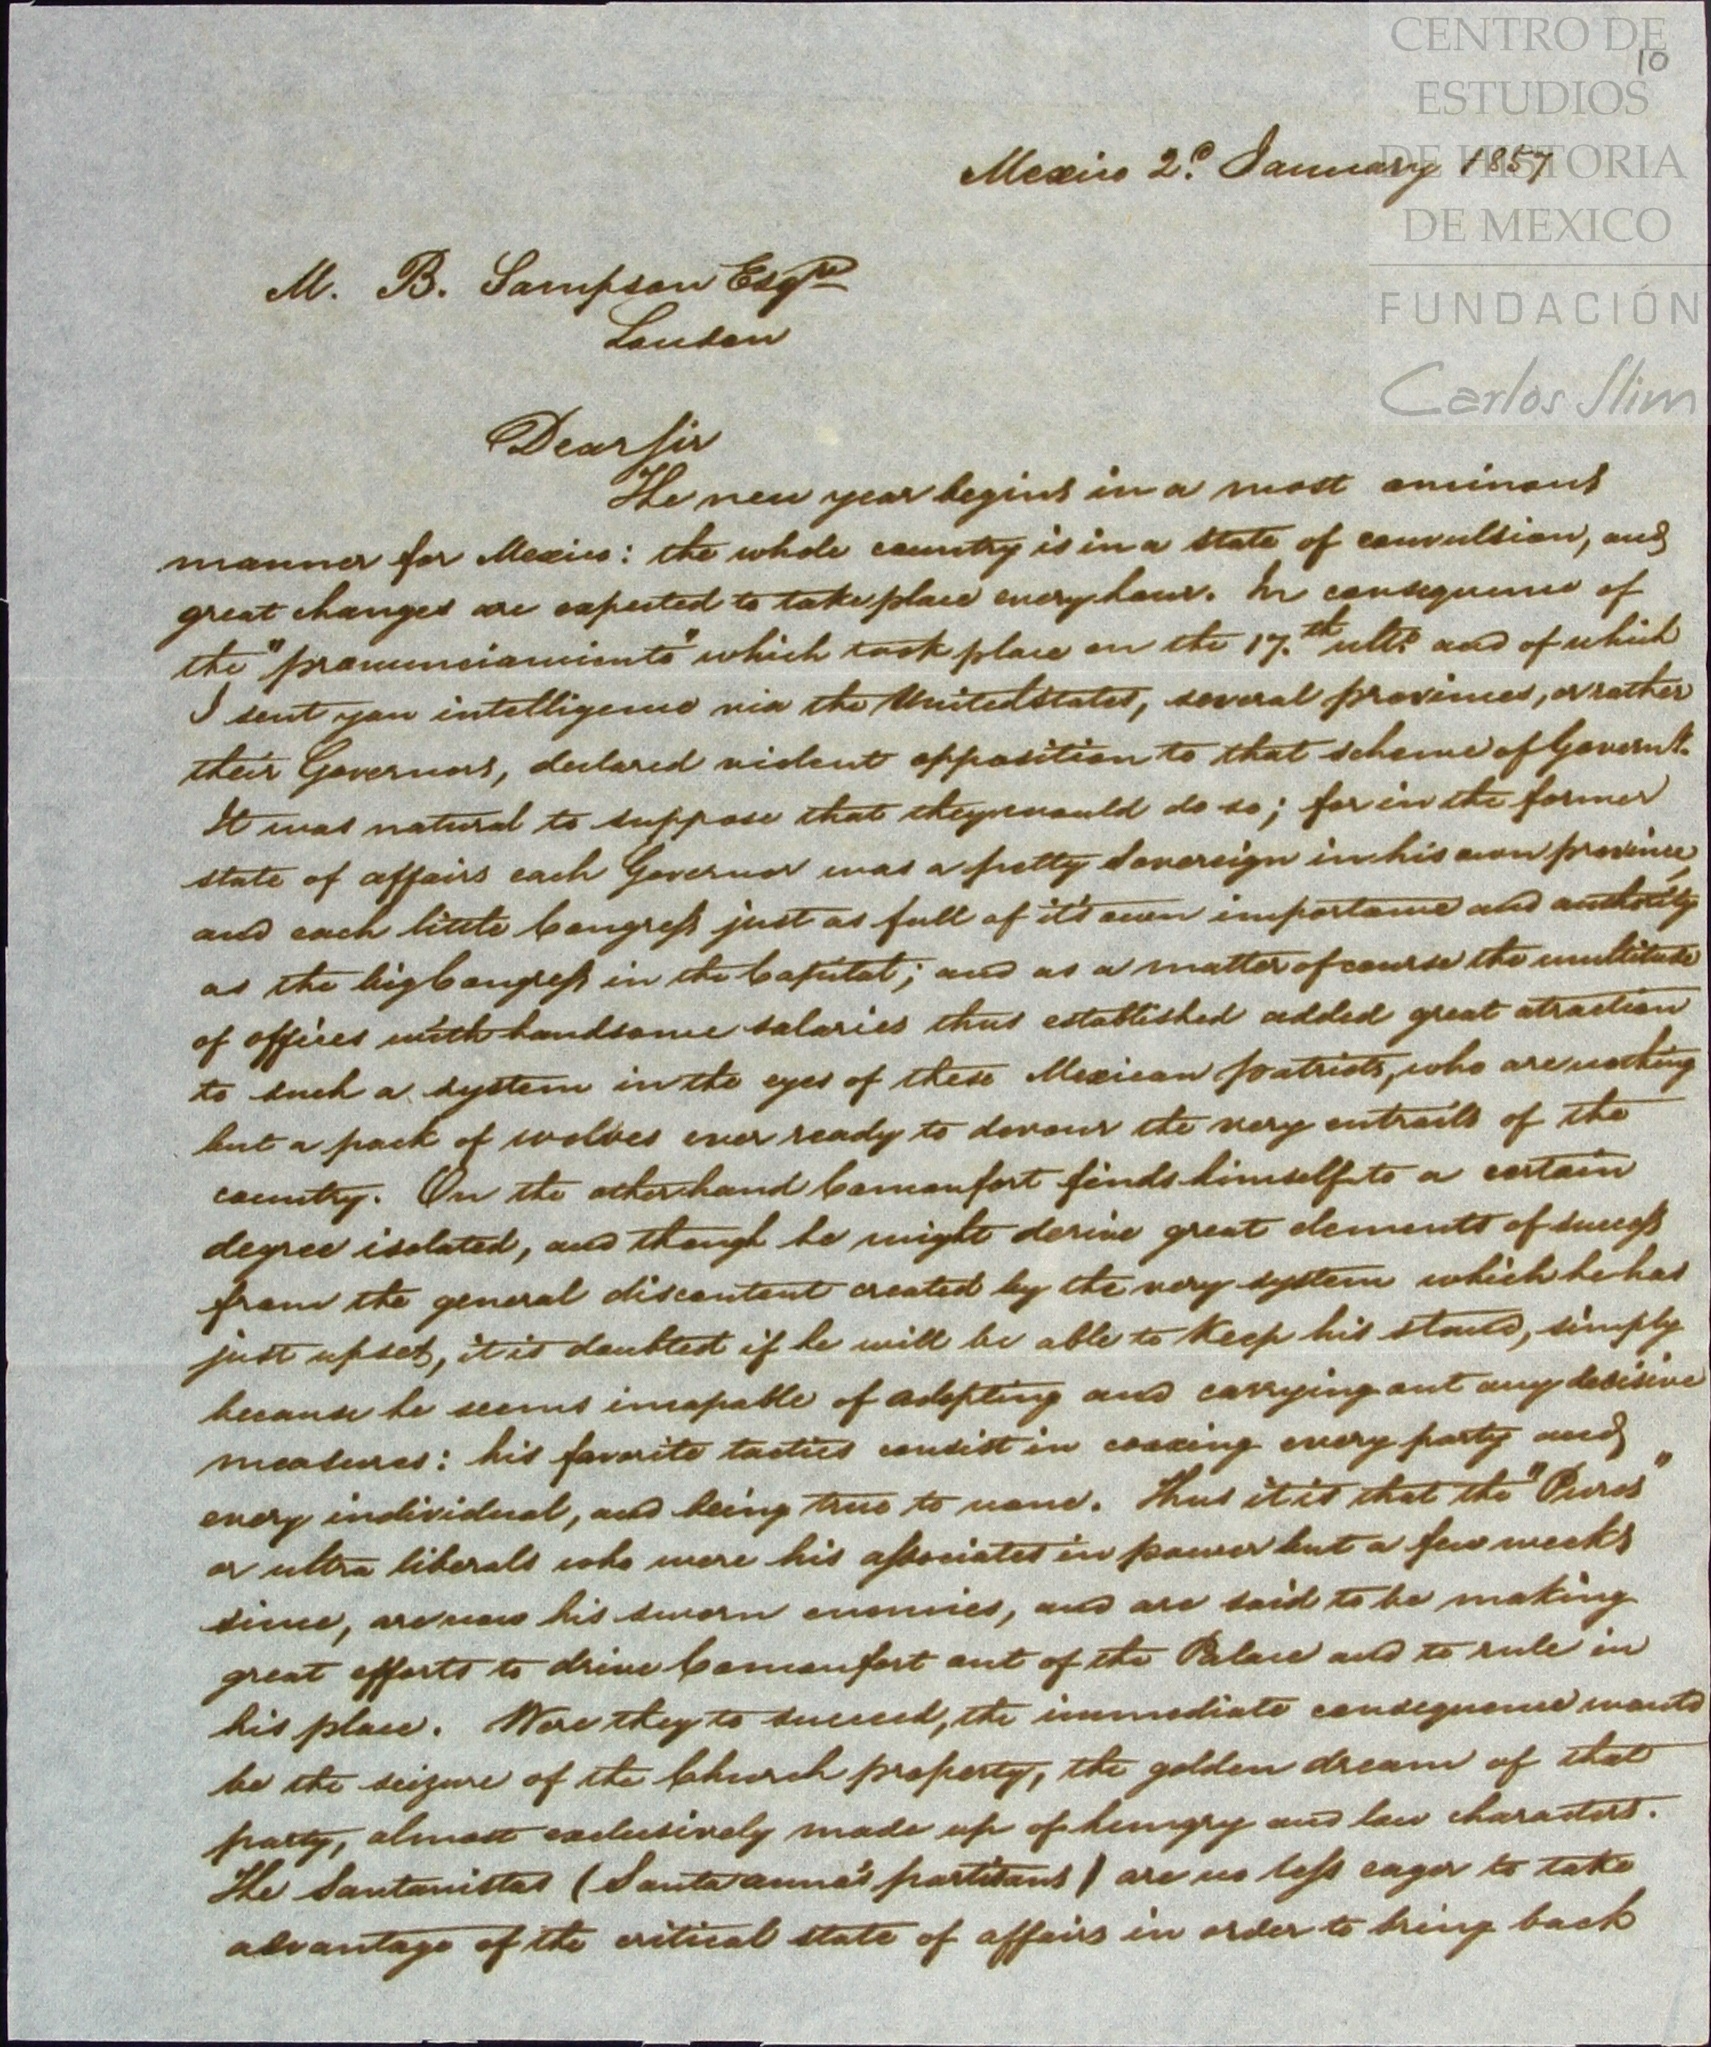 CENTRO DE
ESTUDIOS
DE HISTORIA
DE MEXICO
FUNDACIÓN
Carlos Slim
10
Mexico 2.d January 1857
M. B. Sampson Esqre
London
Dear Sir
The new year begins in a most ominous
manner for Mexico: the whole country is in a state of convulsion, and
great changes are expected to take place every hour. In consequence of
the "pronunciamiento" which took place on the 17.th ulto. and of which
I sent you intelligence via the United States, several provinces, or rather
their Governors, declared violent opposition to that scheme of Governt.
It was natural to suppose that they would do so; for in the former
state of affairs each Governor was a petty Sovereign in his own province,
and each little Congress just as full of it's own importance and authority
as the big Congress in the Capital; and as a matter of course the multitude
of offices with handsome salaries thus established added great atraction
to such a system in the eyes of these Mexican patriots, who are nothing
but a pack of wolves ever ready to devour the very entrails of the
country. On the other hand Comonfort finds himself to a certain
degree isolated, and though he might derive great elements of success
from the general discontent created by the very system which he has
just upset, it is doubted if he will be able to keep his stand, simply
because he seems incapable of adopting and carrying out any decisive
measures: his favorite tactics consist in coaxing every party and
every individual, and being true to none. Thus it is that the "Puros"
or ultra liberals who were his associates in power but a few weeks
since, are now his sworn enemies, and are said to be making
great efforts to drive Comonfort out of the Palace and to rule in
his place. Were they to succeed, the immediate consequence would
be the seizure of the Church property, the golden dream of that
party, almost exclusively made up of hungry and low characters.
The Santanistas (Santa anna's partisans) are no less eager to take
advantage of the critical state of affairs in order to bring back